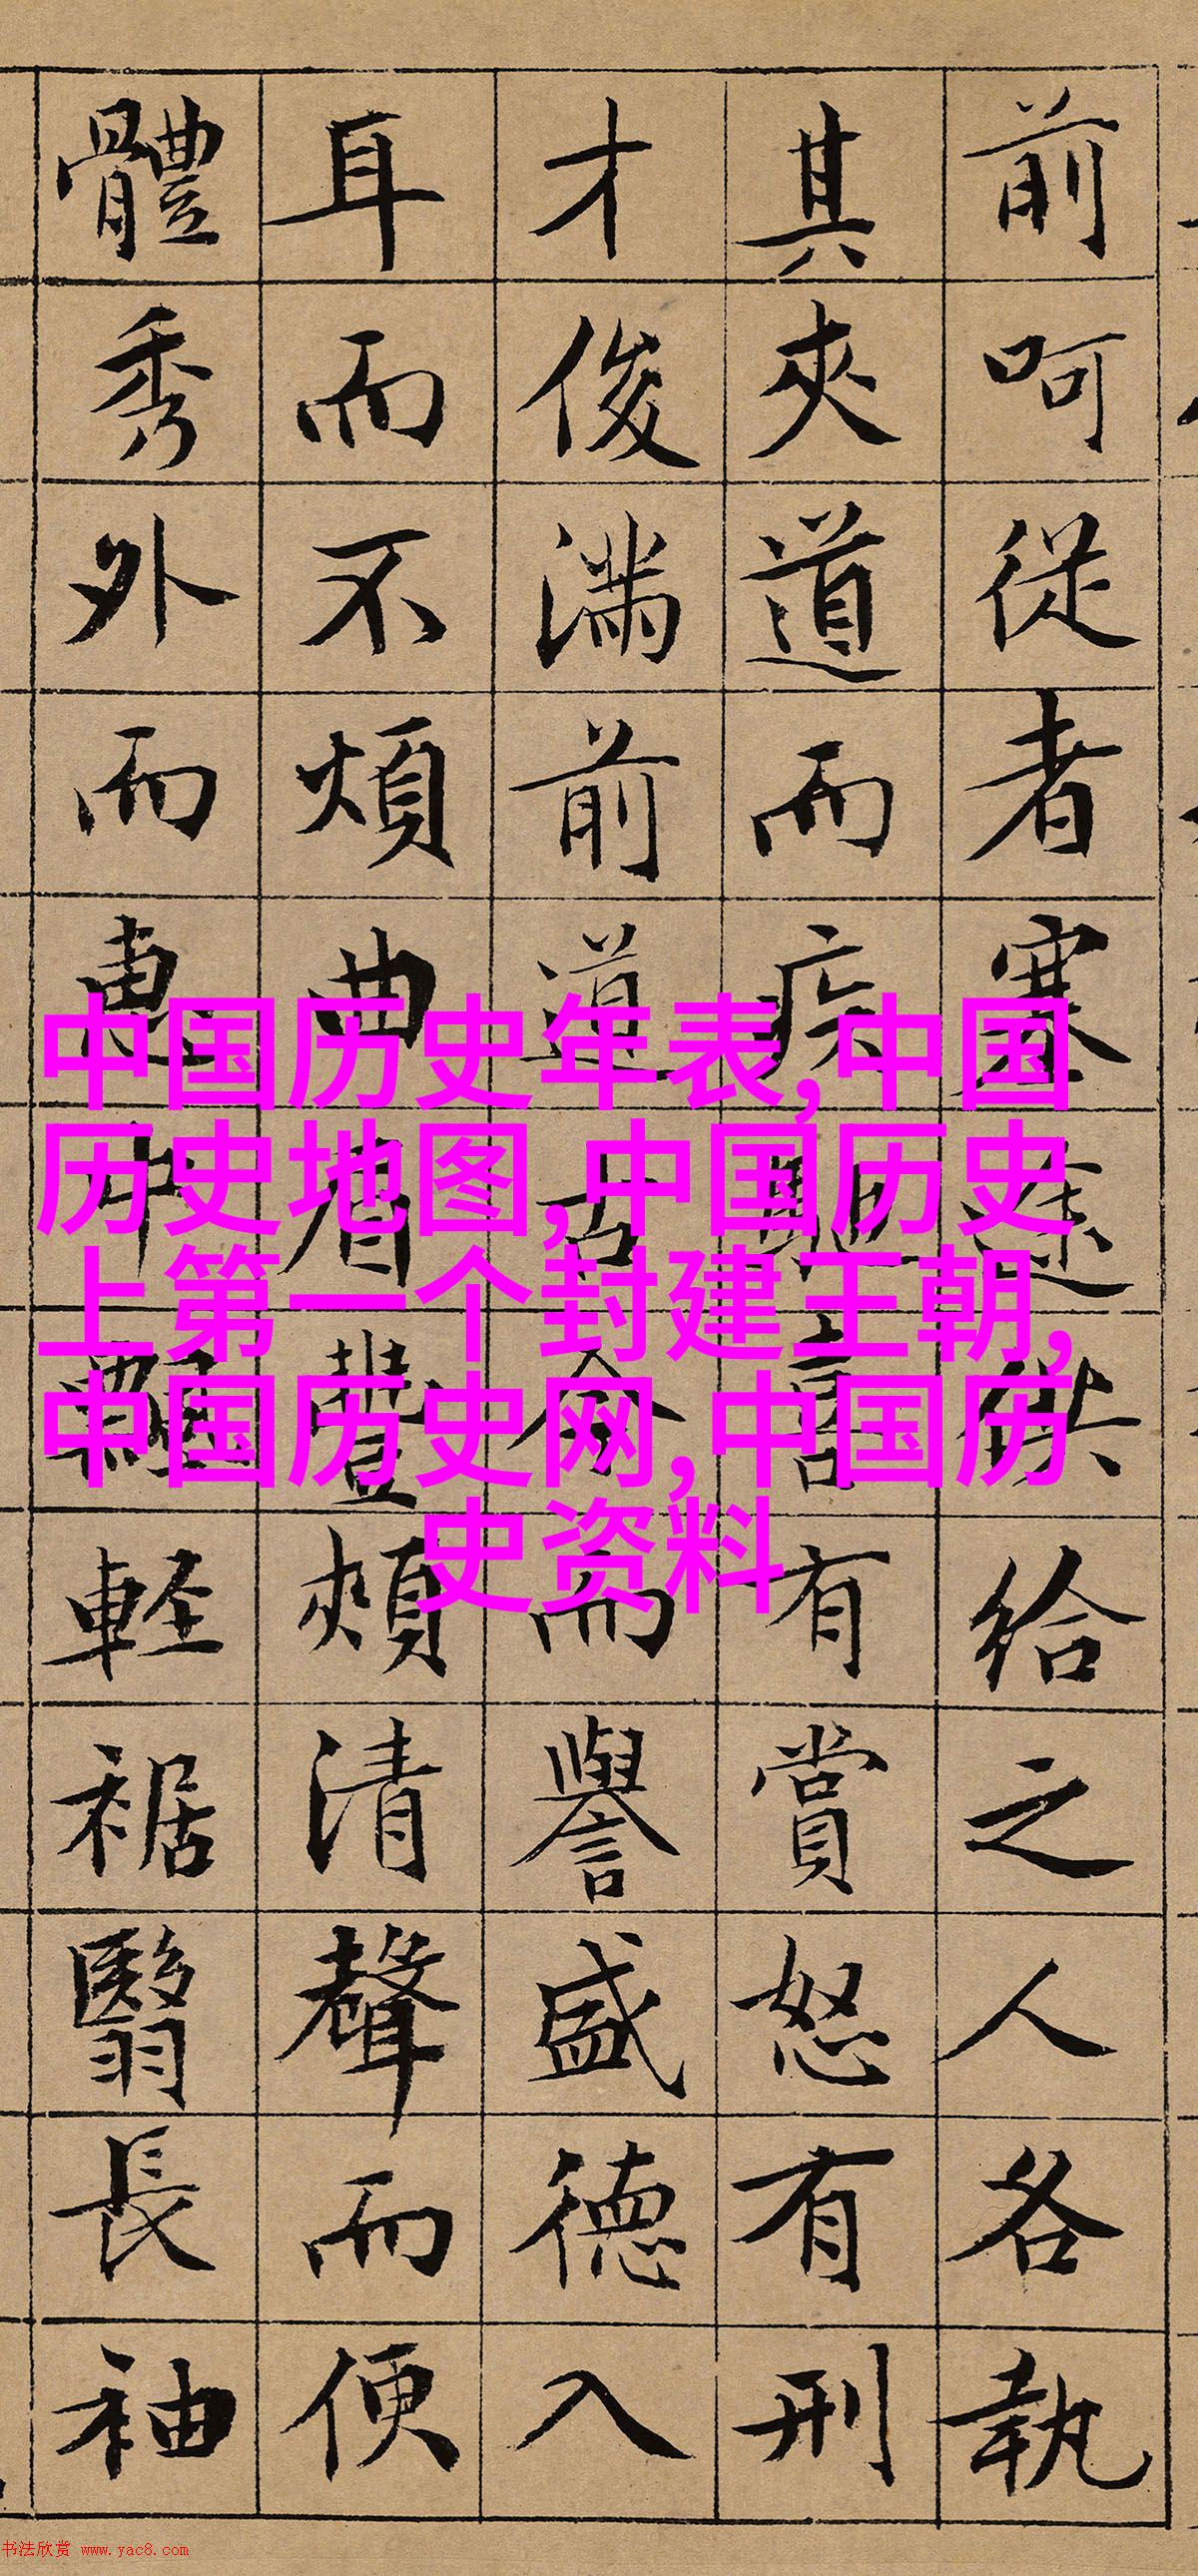 前呵從者塞途供給之人各執
其夾道而疾馳喜有賞怒有刑
才俊滿前道古今而譽盛德入
耳而不煩曲眉豐頰清聲而便
體秀外而惠中飄輕裾翳長袖
中国历史年表,中国
历史地图,中国历史
上第一个封建王朝,
中国历史网,中国历
史资料
书法欣赏 www.yac8.com